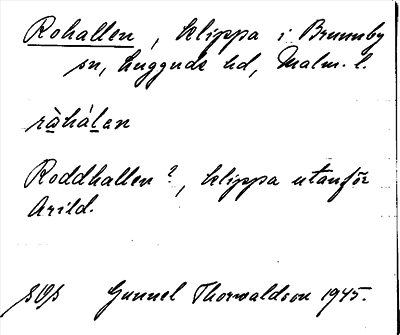 Rohallen, klippa i Brunnby
sn, Luggude hd, Malm. l.
ràhálan
Roddhallen?, klippa utanför
Arild.
Gunnel Thorwaldson 1945.